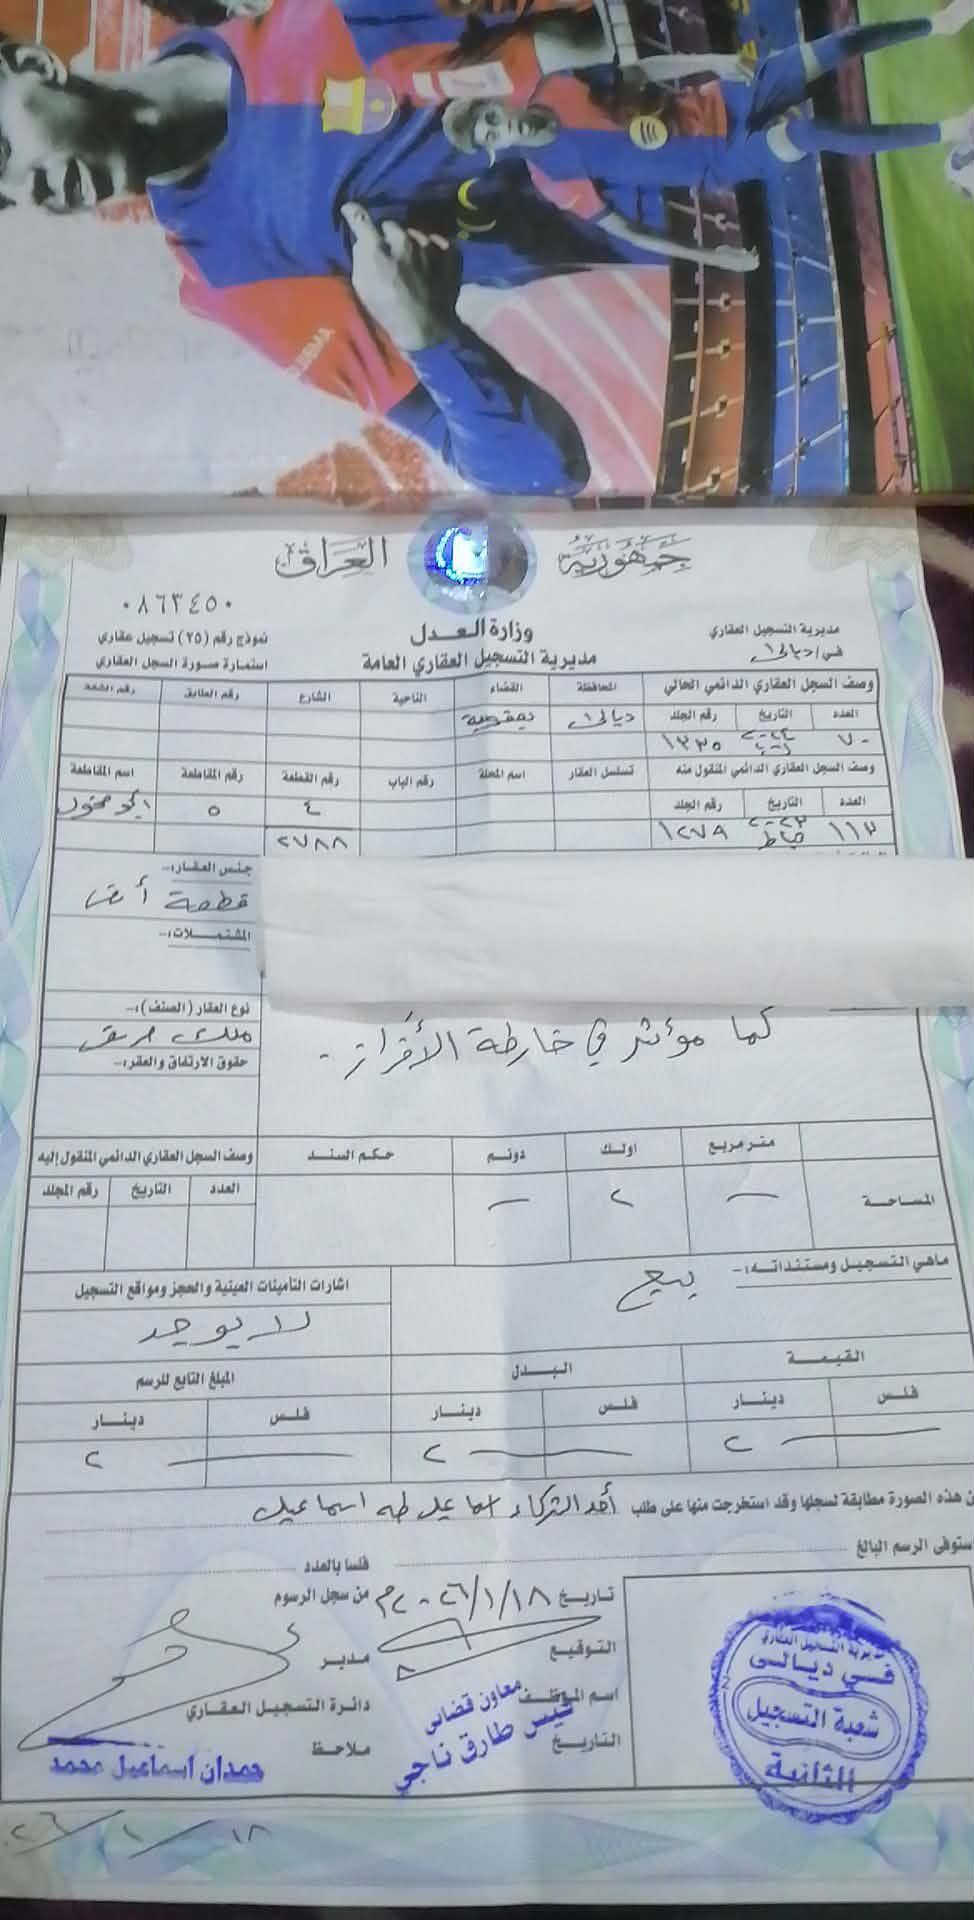 جمهورية العراق
٠٨٦٣٤٥٠
وزارة العدل
مديرية التسجيل العقاري العامة
مديرية التسجيل العقاري
في/ديالى
نموذج رقم (٢٥) تسجيل عقاري
استمارة صورة السجل العقاري
وصف السجل العقاري الدائمي الحالي المحافظة القضاء الناحية الشارع رقم الطابق رقم الشقة
العدد التاريخ رقم الجلد ديالى بعقوبة
٧٠ ١٣٣٥
وصف السجل العقاري الدائمي المنقول منه تسلسل العقار اسم المحلة رقم الباب رقم القطعة رقم المقاطعة اسم المقاطعة
العدد التاريخ رقم الجلد ٤ ٥
١١٣ ١٢٧٩ ٢٧٨٨
جنس العقار:-
قطعة أرض
المشتملات:-
نوع العقار (الصنف):-
ملك صرف
حقوق الارتفاق والعقر:-
كما مؤشر في خارطة الأفراز -
متر مربع اولك دونم حكم السند وصف السجل العقاري الدائمي المنقول إليه
المساحة — ٢ — العدد التاريخ رقم المجلد
ماهي التسجيل ومستنداته:- بيع
اشارات التأمينات العينية والحجز ومواقع التسجيل
لا يوجد
القيمة البدل المبلغ التابع للرسم
فلس دينار فلس دينار فلس دينار
— ٢ — ٢ — ٢
ن هذه الصورة مطابقة لسجلها وقد استخرجت منها على طلب أحد الشركاء اسماعيل طه اسماعيل
ستوفى الرسم البالغ فلسا بالعدد
تاريخ ٢٠٢٦/١/١٨م من سجل الرسوم
التوقيع
مدير
اسم الموظف
معاون قضائي
قيس طارق ناجي
دائرة التسجيل العقاري
التاريخ
ملاحظ
حمدان اسماعيل محمد
مديرية التسجيل العقاري
في ديالى
شعبة التسجيل
الثانية
٢٦/١/١٨